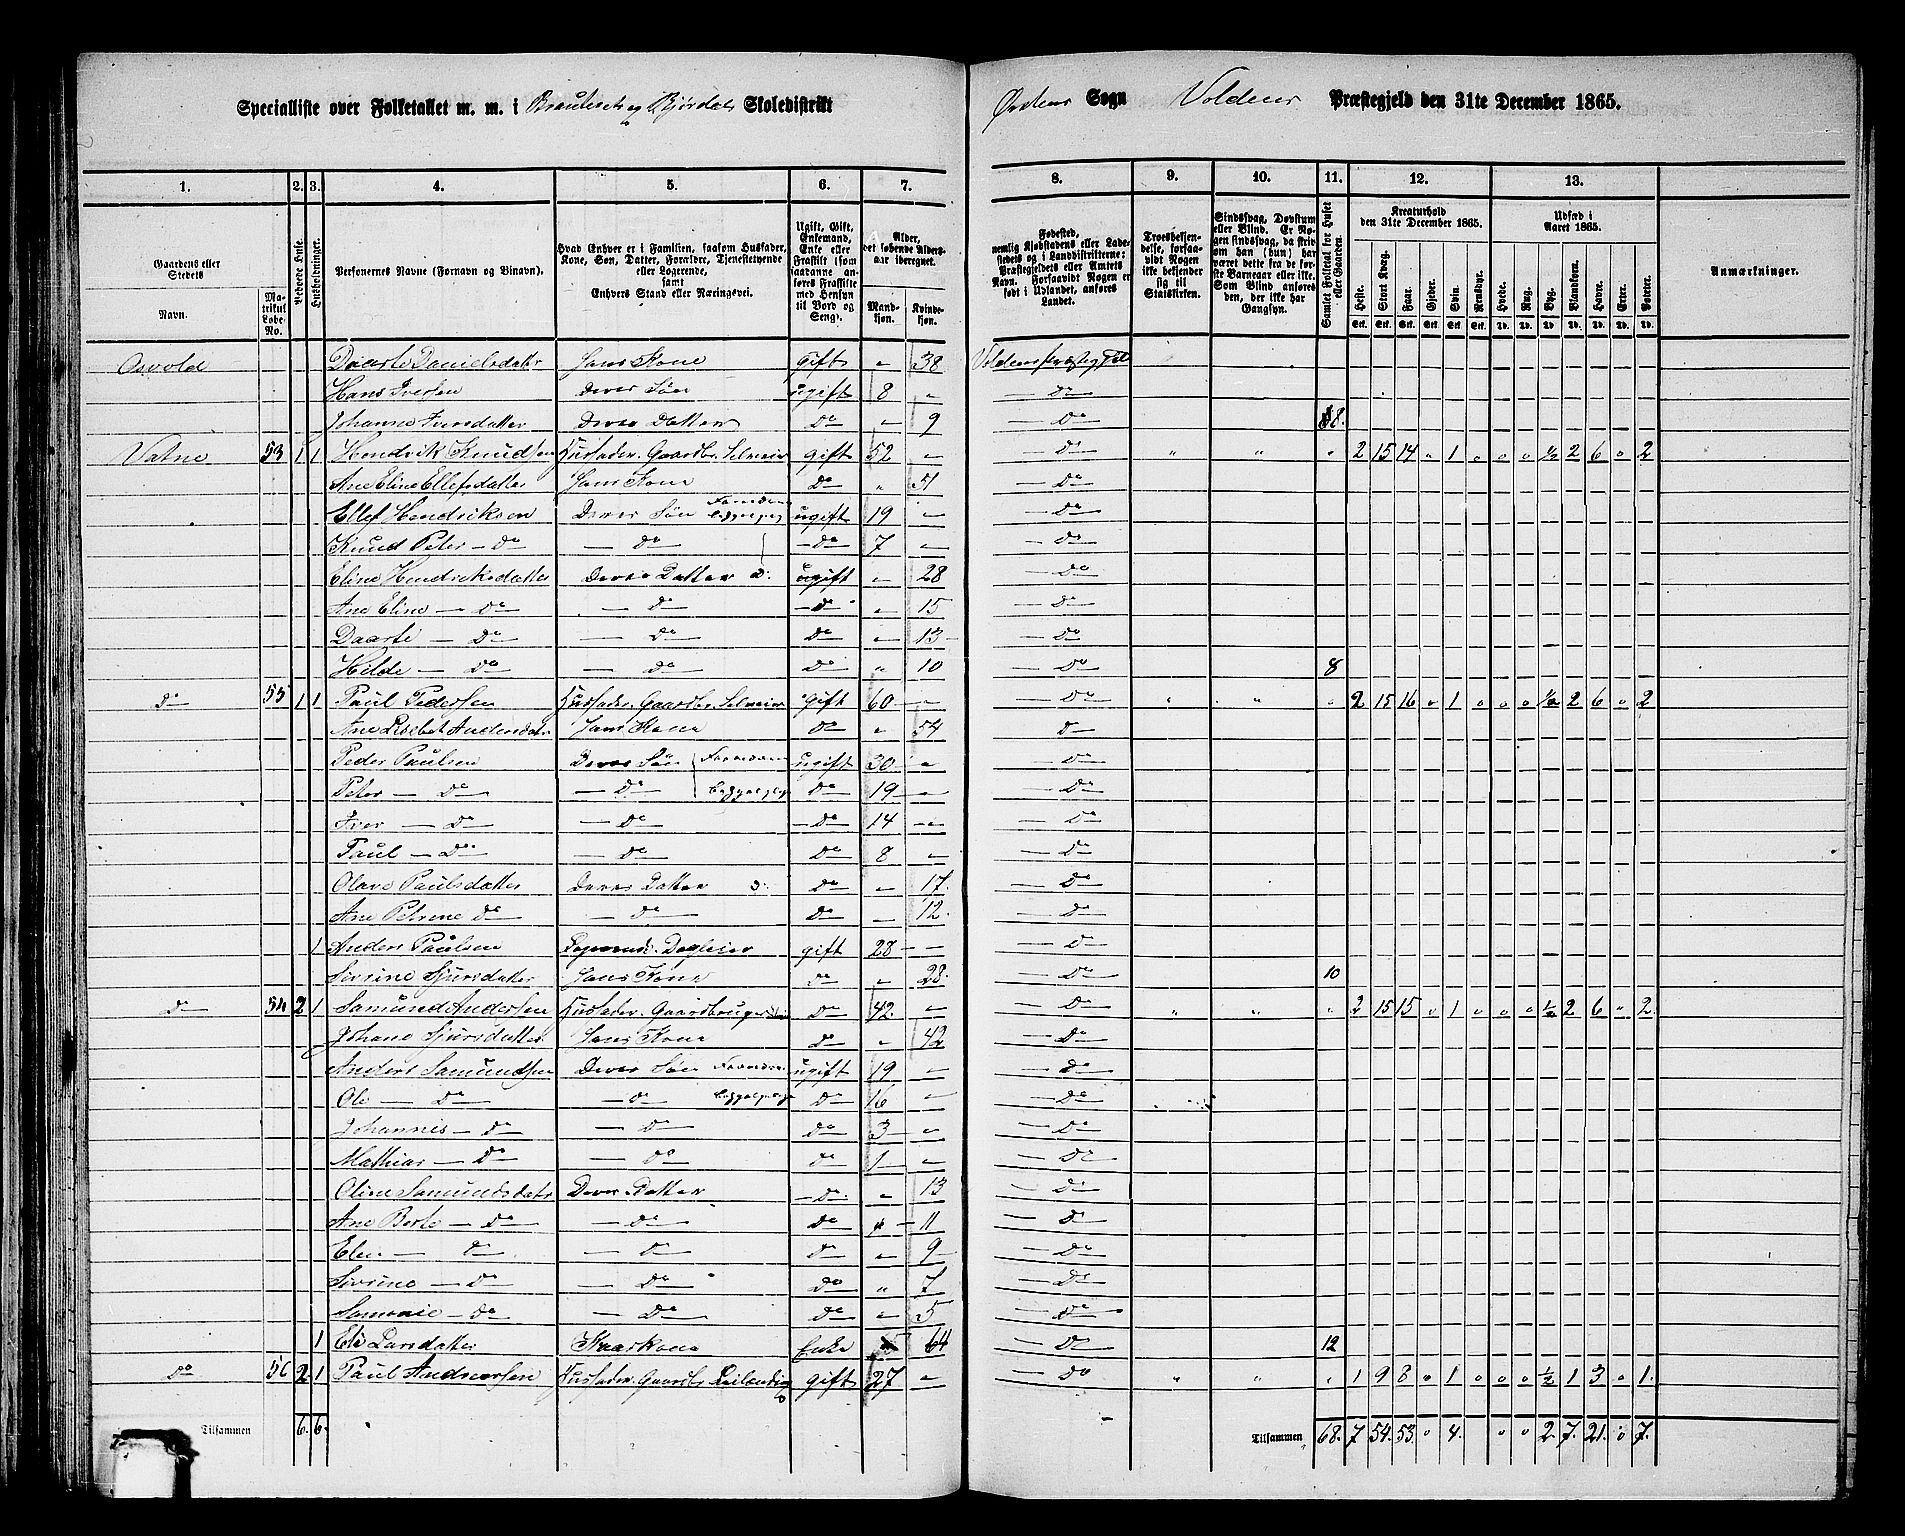 Specialliste over Folketallet m. m. i Brauteset og Bjørdals Skoledistrikt Ørstens Sogn Voldens Præstegjeld den 31te December 1865.
1. 2. 3. 4. 5. 6. 7. 8. 9. 10. 11. 12. 13.
Gaardens eller Stedets
Navn.
Matrikul Løbe-No.
Beboede Huse.
Husholdninger.
Personernes Navne (Fornavn og Binavn).
Hvad Enhver er i Familien, saasom Husfader, Kone, Søn, Datter, Forældre, Tjenestetyende eller Logerende, samt Enhvers Stand eller Næringsvei.
Ugift, Gift, Enkemand, Enke eller Fraskilt (som saadanne anføres Fraskilte med Hensyn til Bord og Seng).
Alder, det løbende Alders-aar iberegnet.
Mand-kjøn. Kvinde-kjøn.
Fødested, nemlig Kjøbstadens eller Ladestedets og i Landdistrikterne: Præstegjeldets eller Amtets Navn. Forsaavidt Nogen er født i Udlandet, anføres Landet.
Troesbekjendelse, forsaavidt Nogen ikke bekjender sig til Statskirken.
Sindssvag, Døvstum eller Blind. Er Nogen sindssvag, da skrives om han (hun) har været dette fra de første Barneaar eller ikke. Som Blind anføres den, der ikke har Gangsyn.
Samlet Folketal for Huset eller Gaarden.
Kreaturhold den 31te December 1865.
Heste. Stort Kvæg. Faar. Gjeder. Svin. Rensdyr.
Udsæd i Aaret 1865.
Hvede. Rug. Byg. Blandkorn. Havre. Erter. Poteter.
Anmærkninger.
Osvold Daarte Danielsdatter Hans Kone Gift " 38 Voldens Præstegjeld
Hans Iversen Deres Søn ugift 8 " Do
Johanne Iversdatter Deres Datter Do " 9 Do 8.
Vatne 53 1 1 Hendrik Knudsen Husfader. Gaardbr. Selveier gift 52 " Do " " " 2 15 14 " 1 " " " ½ 2 6 " 2
Ane Eline Ellefsdatter Hans Kone Do " 51 Do
Ellef Hendriksen Deres Søn ugift 19 " Do
Knud Peter Do Do Do 7 " Do
Eline Hendriksdatter Deres Datter D: ugift " 28 Do
Ane Eline Do Do Do " 15 Do
Daarte Do Do Do " 13 Do
Hilde Do Do Do " 10 Do 8
Do 55 1 1 Paul Pedersen Husfader. Gaardbr. Selveier gift 60 " Do " " " 2 15 16 " 1 " " " ½ 2 6 " 2
Ane Lisebet Andersdatr Hans Kone Do " 54 Do
Peder Paulsen Deres Søn ugift 30 " Do
Peter Do Do Do 19 " Do
Iver Do Do Do 14 " Do
Paul Do Do Do 8 " Do
Olave Paulsdatter Deres Datter D: Do " 17 Do
Ane Petrine Do Do Do " 12 Do
1 Anders Paulsen Dagleier gift 28 " Do
Sivrine Sjursdatter Hans Kone Do " 28 Do 10
Do 54 2 1 Samund Andersen Husfader. Gaardbruger Do 42 " Do " " " 2 15 15 " 1 " " " ½ 2 6 " 2
Johane Sjursdatter Hans Kone Do " 42 Do
Anders Samundsen Deres Søn ugift 19 " Do
Ole Do Do Do 16 " Do
Johannes Do Do Do 3 " Do
Mathias Do Do Do 1 " Do
Oline Samundsdatr Deres Datter Do " 13 Do
Ane Berte Do Do Do " 11 Do
Elen Do Do Do " 9 Do
Sivrine Do Do Do " 7 Do
Do Do Do " 5 Do
1 Eli Larsdatter Kaarkone Enke 64 Do 12
Do 56 2 1 Paul Andersen Husfader. Gaardbr. Leilending gift 27 " Do " " " 1 9 8 " 1 " " " ½ 1 3 " 1
Tilsammen 6. 6. Tilsammen 68. 7 54. 53. " 4. " " 2 7. 21. " 7.